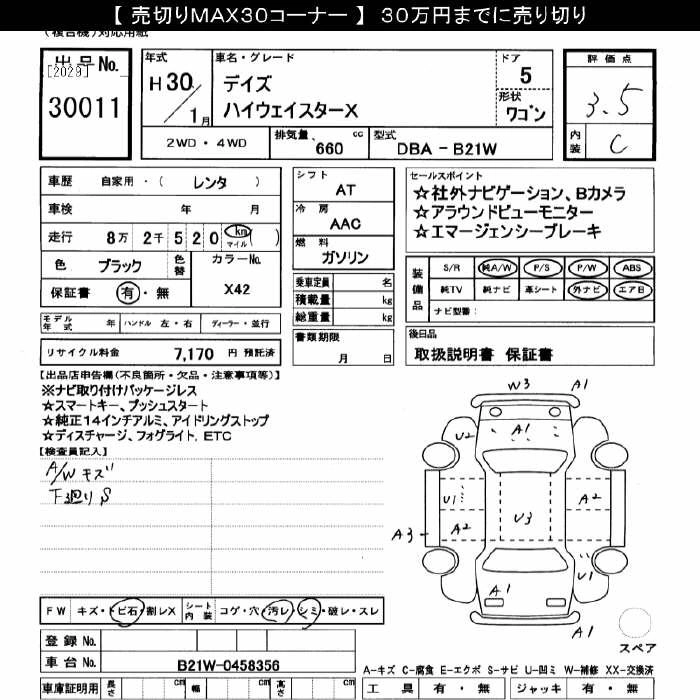 【 売切りMAX30コーナー 】 30万円までに売り切り
(複合機)対応用紙
出品No. [2029] 30011
年式 H 30/1月
車名・グレード デイズ ハイウェイスターX
ドア 5
形状 ワゴン
評価点 3.5
内装 C
2WD ・ 4WD
排気量 660 cc
型式 DBA - B21W
車歴 自家用 ・ ( レンタ )
車検 年 月
走行 8万 2千 5 2 0 km マイル ( )
色 ブラック 色替 カラーNo. X42
保証書 有 ・ 無
シフト AT
冷房 AAC
燃料 ガソリン
乗車定員 名
積載量 kg
総重量 kg
セールスポイント
☆社外ナビゲーション、Bカメラ
☆アラウンドビューモニター
☆エマージェンシーブレーキ
装備品 S/R 純A/W P/S P/W ABS
純TV 純ナビ 革シート 外ナビ エアB
ナビ型番:
モデル年式 年 ハンドル 左 ・ 右 ディーラー ・ 並行
書類期限 月 日
後日品
取扱説明書 保証書
リサイクル料金 7,170 円 預託済
【出品店申告欄(不良箇所・欠品・注意事項等)】
※ナビ取り付けパッケージレス
☆スマートキー、プッシュスタート
☆純正14インチアルミ、アイドリングストップ
☆ディスチャージ、フォグライト、ETC
【検査員記入】
A/W キズ
下廻り S
W3 A1
U2 A1
U1 A2
U3
A3 A2
U1
A1
A1
スペア
FW キズ・トビ石・割レX シート内装 コゲ・穴・汚レ・シミ・破レ・スレ
登録 No.
車台 No. B21W-0458356
A-キズ C-腐食 E-エクボ S-サビ U-凹ミ W-補修 XX-交換済
車庫証明用 長さ cm 幅 cm 高さ cm
工具 有 ・ 無 ジャッキ 有 ・ 無